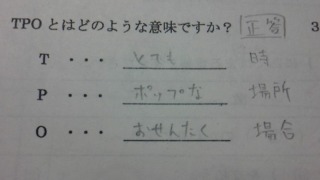 TPOとはどのような意味ですか? 正答 3
T ・・・ とても 時
P ・・・ ポップな 場所
O ・・・ おせんたく 場合